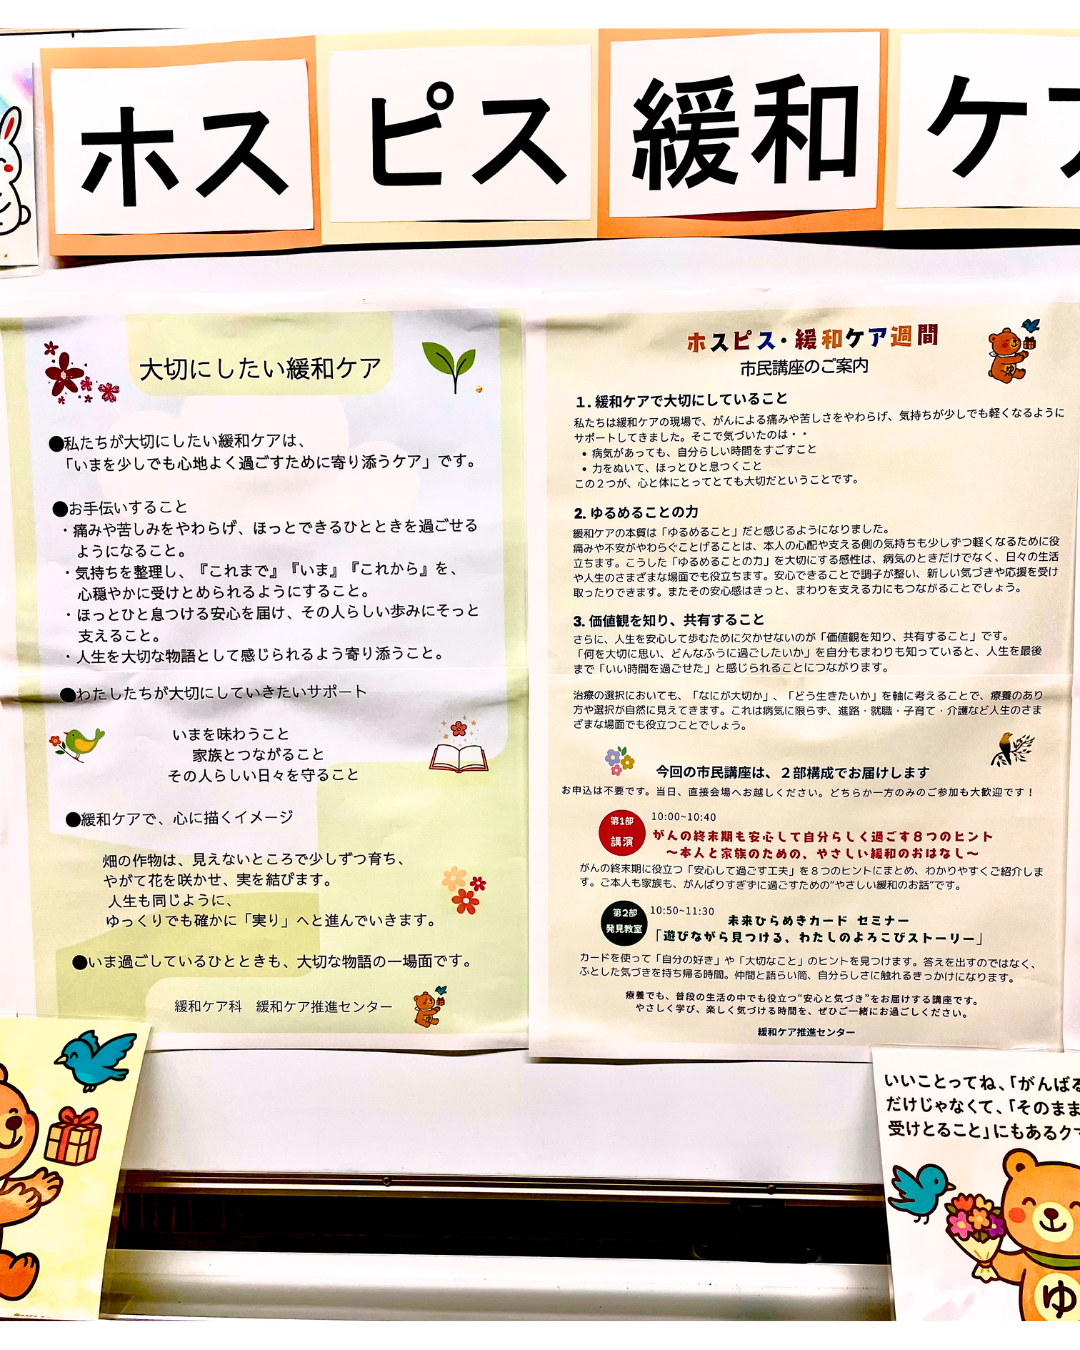 ホスピス緩和ケア
大切にしたい緩和ケア
●私たちが大切にしたい緩和ケアは、
「いまを少しでも心地よく過ごすために寄り添うケア」です。
●お手伝いすること
・痛みや苦しみをやわらげ、ほっとできるひとときを過ごせる
ようになること。
・気持ちを整理し、『これまで』『いま』『これから』を、
心穏やかに受けとめられるようにすること。
・ほっとひと息つける安心を届け、その人らしい歩みにそっと
支えること。
・人生を大切な物語として感じられるよう寄り添うこと。
●わたしたちが大切にしていきたいサポート
いまを味わうこと
家族とつながること
その人らしい日々を守ること
●緩和ケアで、心に描くイメージ
畑の作物は、見えないところで少しずつ育ち、
やがて花を咲かせ、実を結びます。
人生も同じように、
ゆっくりでも確かに「実り」へと進んでいきます。
●いま過ごしているひとときも、大切な物語の一場面です。
緩和ケア科 緩和ケア推進センター
ホスピス・緩和ケア週間
市民講座のご案内
ゆ
1. 緩和ケアで大切にしていること
私たちは緩和ケアの現場で、がんによる痛みや苦しさをやわらげ、気持ちが少しでも軽くなるように
サポートしてきました。そこで気づいたのは・・
• 病気があっても、自分らしい時間をすごすこと
• 力をぬいて、ほっとひと息つくこと
この2つが、心と体にとってとても大切だということです。
2. ゆるめることの力
緩和ケアの本質は「ゆるめること」だと感じるようになりました。
痛みや不安がやわらぐことげることは、本人の心配や支える側の気持ちも少しずつ軽くなるために役
立ちます。こうした「ゆるめることの力」を大切にする感性は、病気のときだけでなく、日々の生活
や人生のさまざまな場面でも役立ちます。安心できることで調子が整い、新しい気づきや応援を受け
取ったりできます。またその安心感はきっと、まわりを支える力にもつながることでしょう。
3. 価値観を知り、共有すること
さらに、人生を安心して歩むために欠かせないのが「価値観を知り、共有すること」です。
「何を大切に思い、どんなふうに過ごしたいか」を自分もまわりも知っていると、人生を最後
まで「いい時間を過ごせた」と感じられることにつながります。
治療の選択においても、「なにが大切か」、「どう生きたいか」を軸に考えることで、療養のあり
方や選択が自然に見えてきます。これは病気に限らず、進路・就職・子育て・介護など人生のさま
ざまな場面でも役立つことでしょう。
今回の市民講座は、2部構成でお届けします
お申込は不要です。当日、直接会場へお越しください。どちらか一方のみのご参加も大歓迎です！
第1部
講演
10:00~10:40
がんの終末期も安心して自分らしく過ごす8つのヒント
～本人と家族のための、やさしい緩和のおはなし～
がんの終末期に役立つ「安心して過ごす工夫」を8つのヒントにまとめ、わかりやすくご紹介しま
す。ご本人も家族も、がんばりすぎずに過ごすための"やさしい緩和のお話"です。
第2部
発見教室
10:50~11:30
未来ひらめきカード セミナー
「遊びながら見つける、わたしのよろこびストーリー」
カードを使って「自分の好き」や「大切なこと」のヒントを見つけます。答えを出すのではなく、
ふとした気づきを持ち帰る時間。仲間と語らい笥、自分らしさに触れるきっかけになります。
療養でも、普段の生活の中でも役立つ"安心と気づき"をお届けする講座です。
やさしく学び、楽しく気づける時間を、ぜひご一緒にお過ごしください。
緩和ケア推進センター
いいことってね、「がんばる
だけじゃなくて、「そのまま
受けとること」にもあるクマ
ゆ